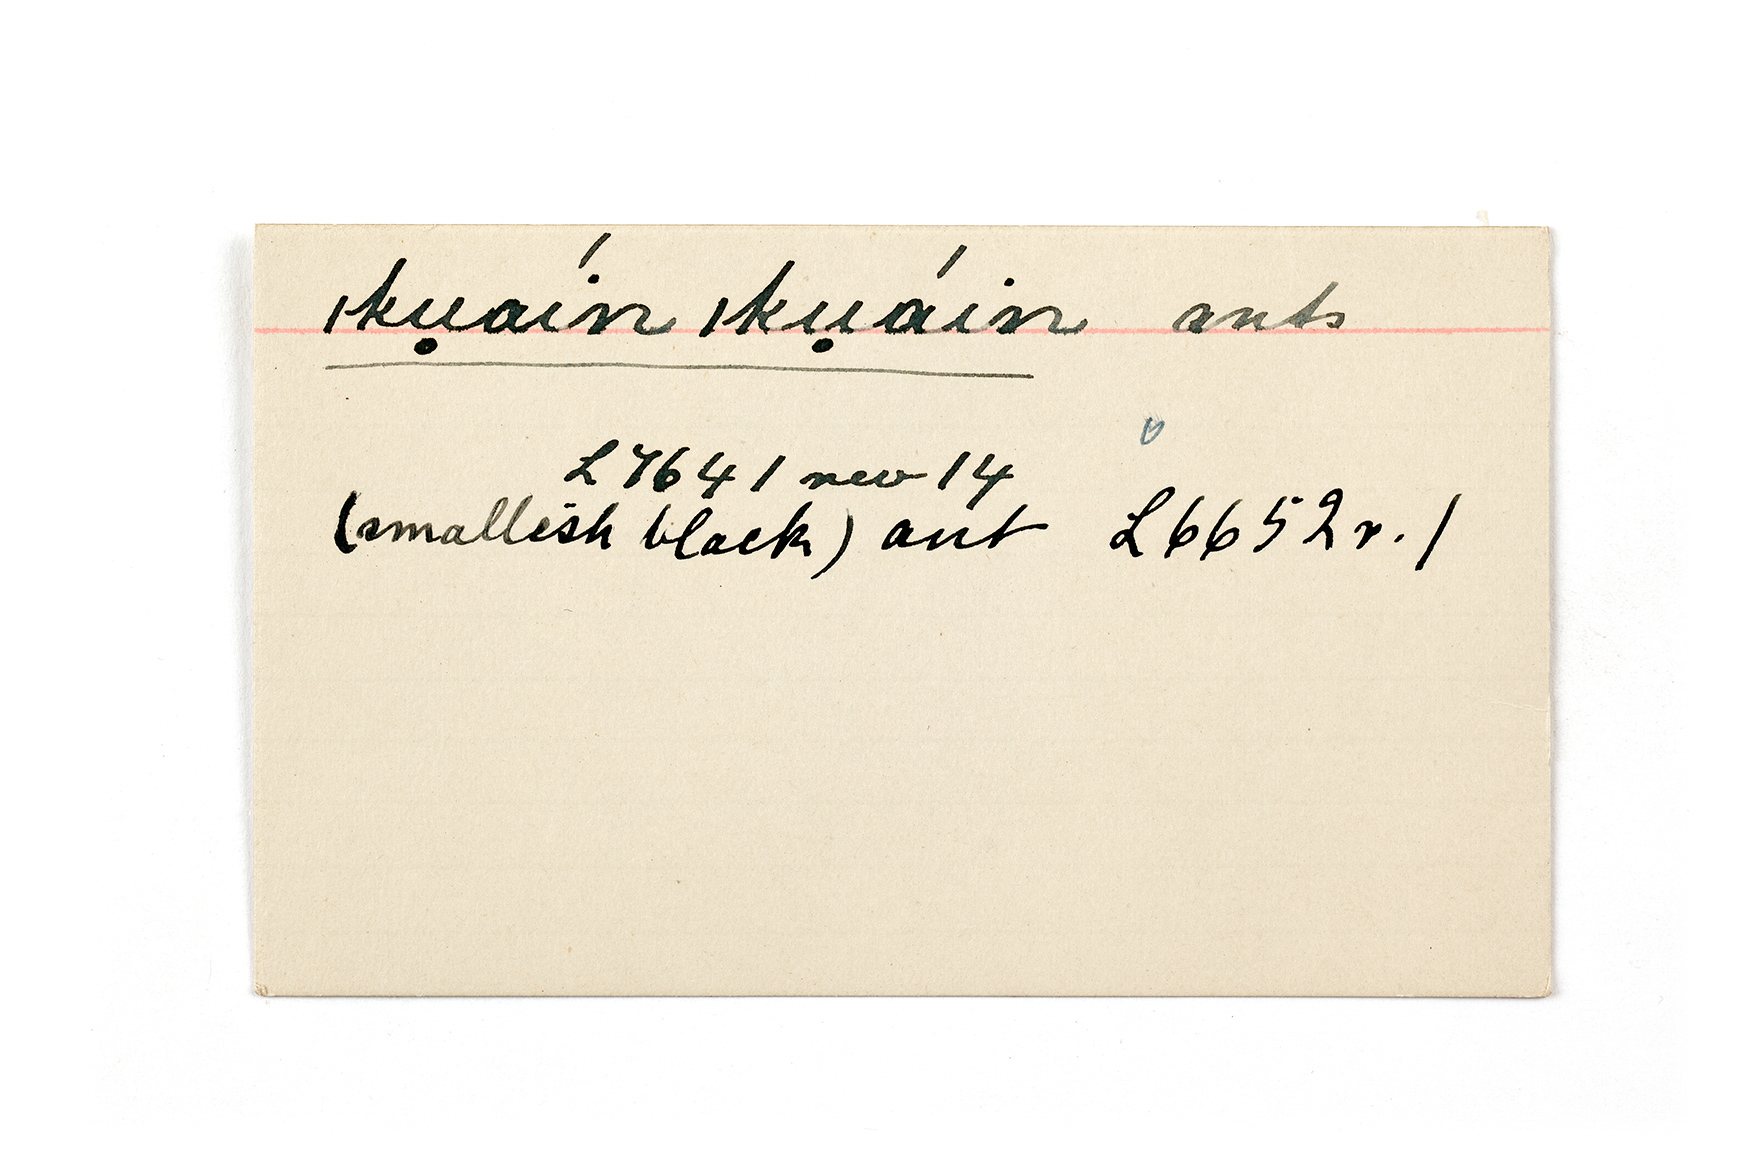 ıkụáin ıkụáin ants
L 7641 rev 14
(smallish black) ant L 6652 r. 1